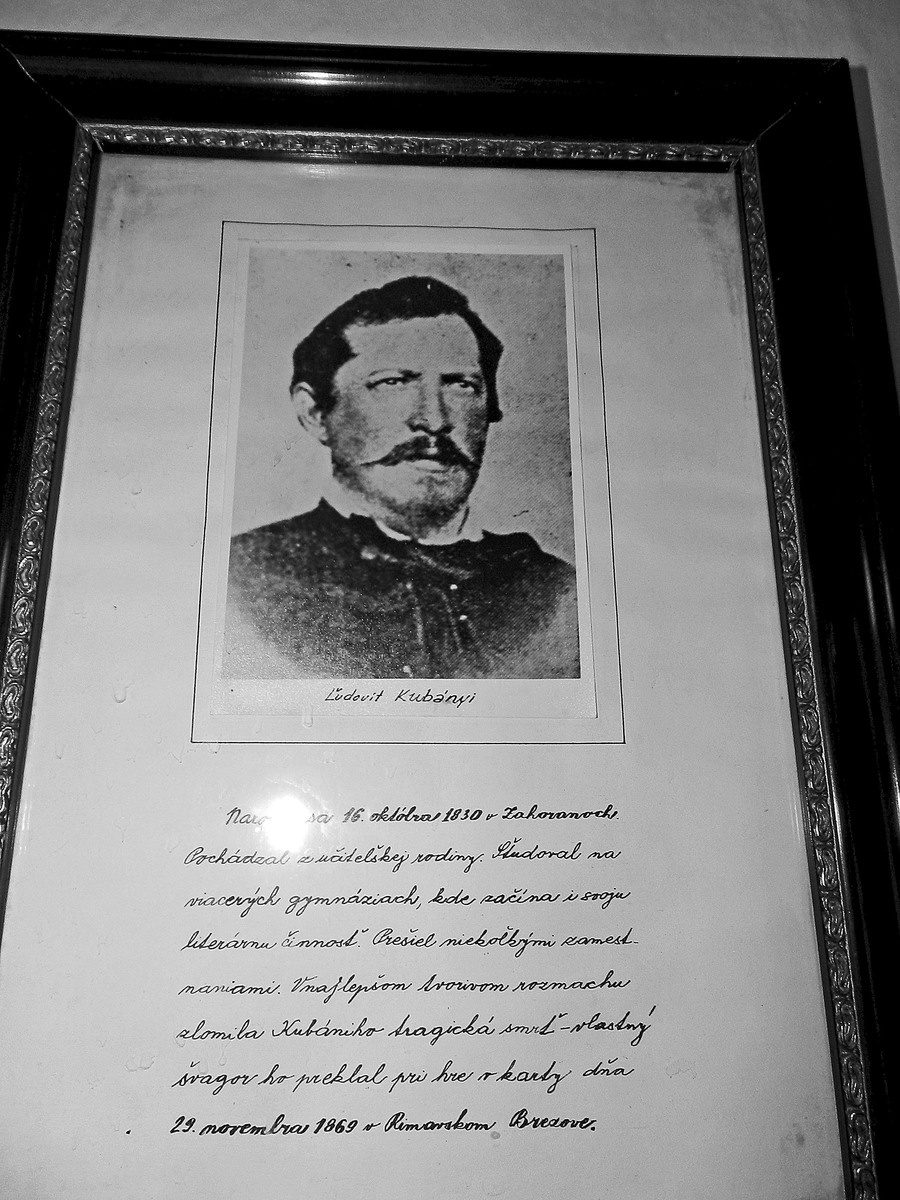 Ľudovít Kubányi
sa 16. októbra 1830 v Zahoranoch.
Pochádzal z učiteľskej rodiny. Študoval na
viacerých gymnáziach, kde začína i svoju
literárnu činnosť. Prešiel niekoľkými zamest-
naniami. V najlepšom tvorivom rozmachu
zlomila Kubániho tragická smrť - vlastný
švagor ho preklal pri hre v karty dňa
29. novembra 1869 v Rimavskom Brezove.